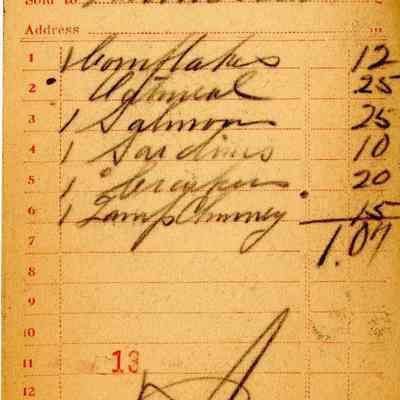 Sold to
Address
1 1 Cornflakes 12
2 Oatmeal 25
3 1 Salmon 25
4 1 Sardines 10
5 1
20
6 1 Lamp Chimney 15
7 1.07
8
9
10
11 13
12